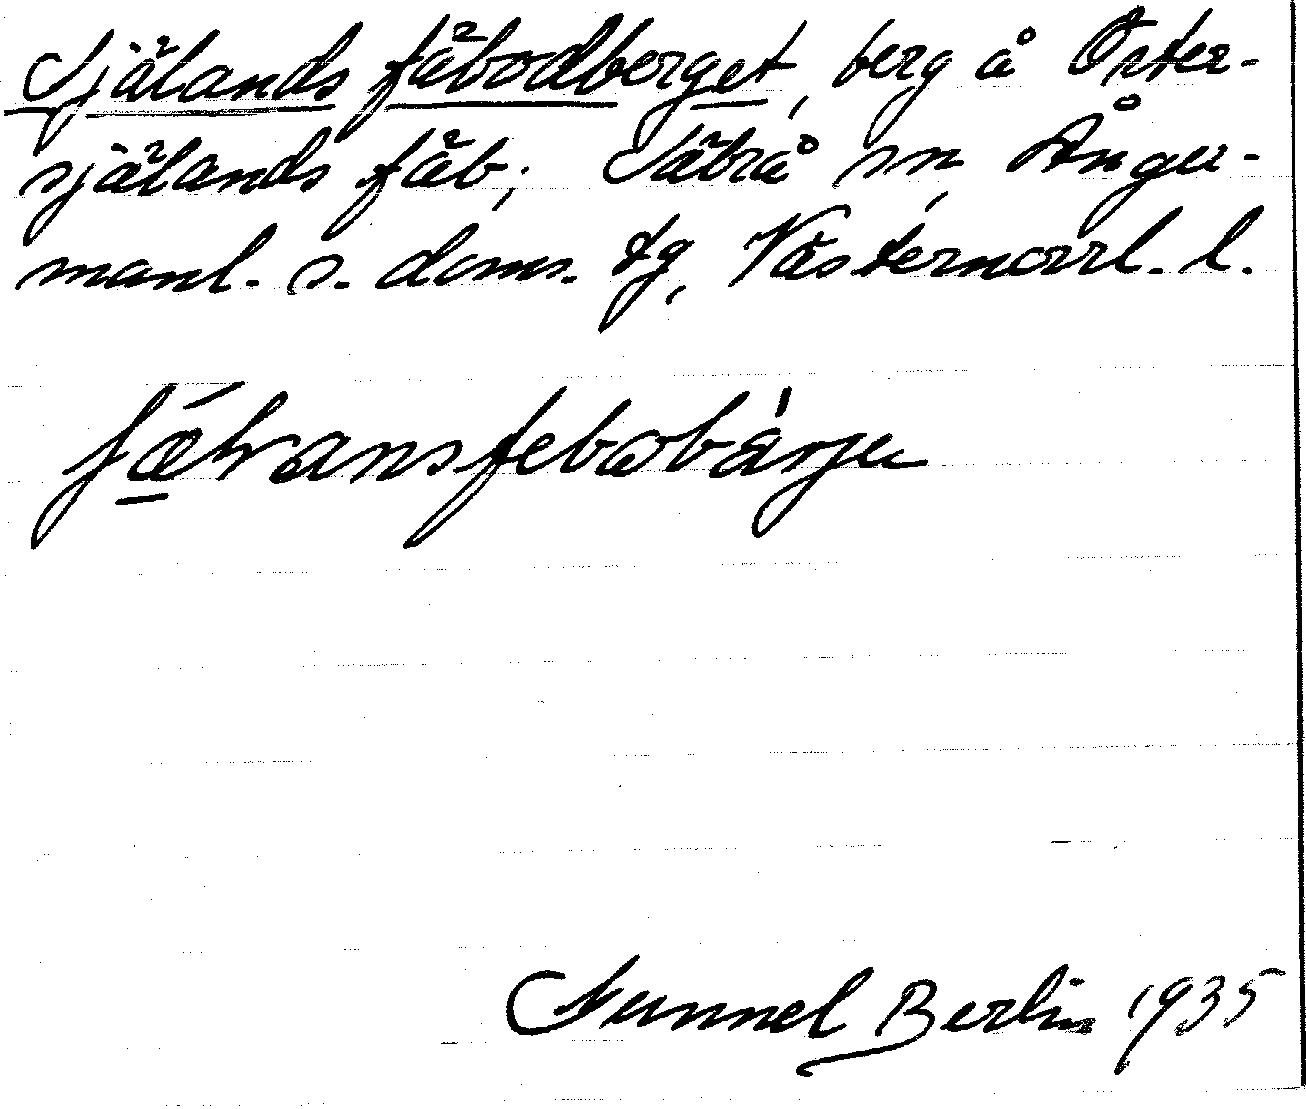 Själands fäbodberget, berg å Öster-
själands fäb; Säbrå sn, Ånger-
manl. s. doms. tg, Västernorrl. l.
Gunnel Berlin 1935